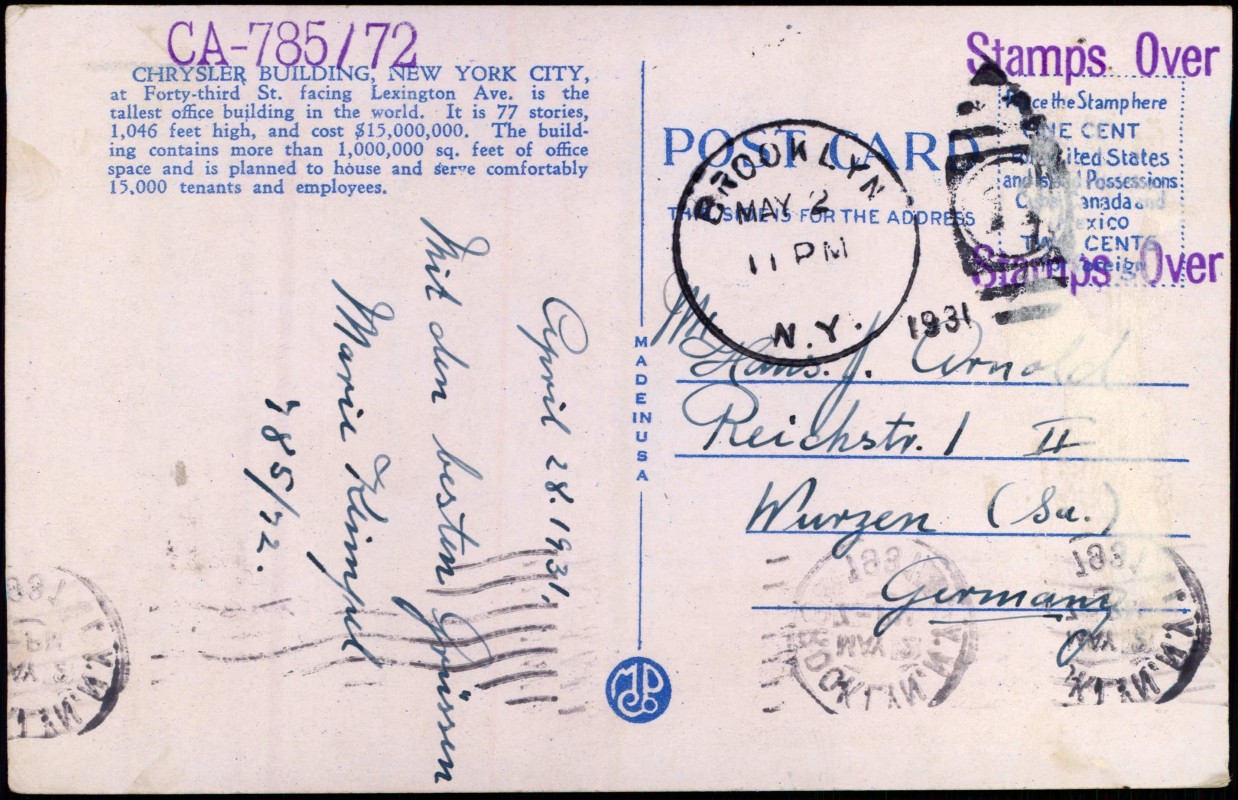 CA-785/72
CHRYSLER BUILDING, NEW YORK CITY,
at Forty-third St. facing Lexington Ave. is the
tallest office building in the world. It is 77 stories,
1,046 feet high, and cost $15,000,000. The build-
ing contains more than 1,000,000 sq. feet of office
space and is planned to house and serve comfortably
15,000 tenants and employees.
April 28. 1931.
Mit den besten Grüssen
Marie Klimpel
785/72.
MADE IN USA
Stamps Over
Place the Stamp here
ONE CENT
United States
and Possessions
Canada and
Mexico
TWO CENTS
Stamps Over
POST CARD
THIS SIDE IS FOR THE ADDRESS
BROOKLYN
MAY 2
11 PM
N.Y.
1931
Mr.
Hans. J. Arnold
Reichstr. 1 II
Wurzen (Sa.)
Germany